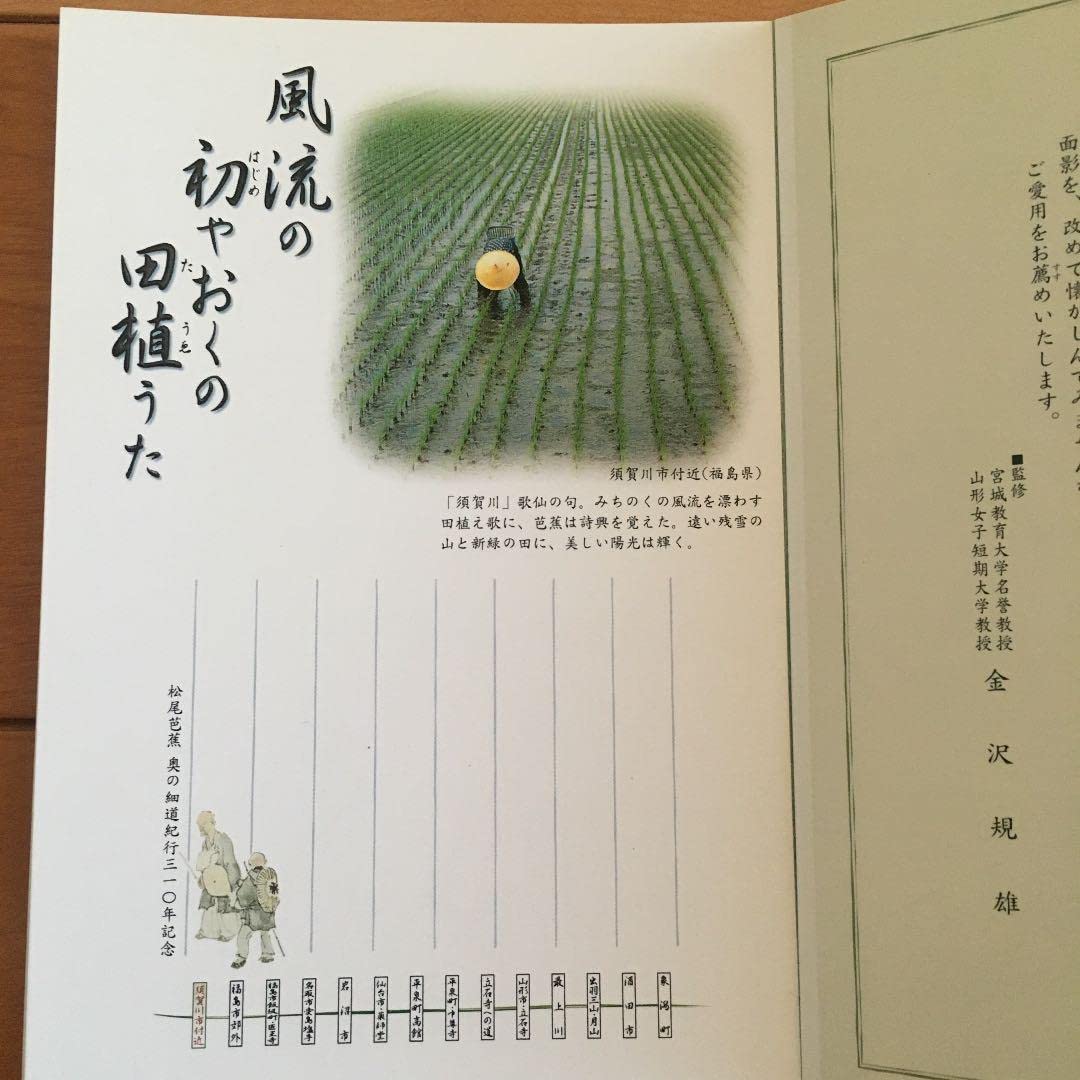 面影を、改めて懐かしんでみ
ご愛用をお薦めいたします。
すす
■監修
宮城教育大学名誉教授
山形女子短期大学教授
金沢規雄
風流の
初やおくの
はじめ
田植うた
た
うゑ
須賀川市付近(福島県)
「須賀川」歌仙の句。みちのくの風流を漂わす
田植え歌に、芭蕉は詩興を覚えた。遠い残雪の
山と新緑の田に、美しい陽光は輝く。
松尾芭蕉 奥の細道紀行三一〇年記念
象潟町
酒田市
出羽三山・月山
最上川
山形市・立石寺
立石寺への道
平泉町・中尊寺
平泉町高館
仙台市・薬師堂
岩沼市
名取市愛島塩手
福島市飯坂町・医王寺
福島市郊外
須賀川市付近